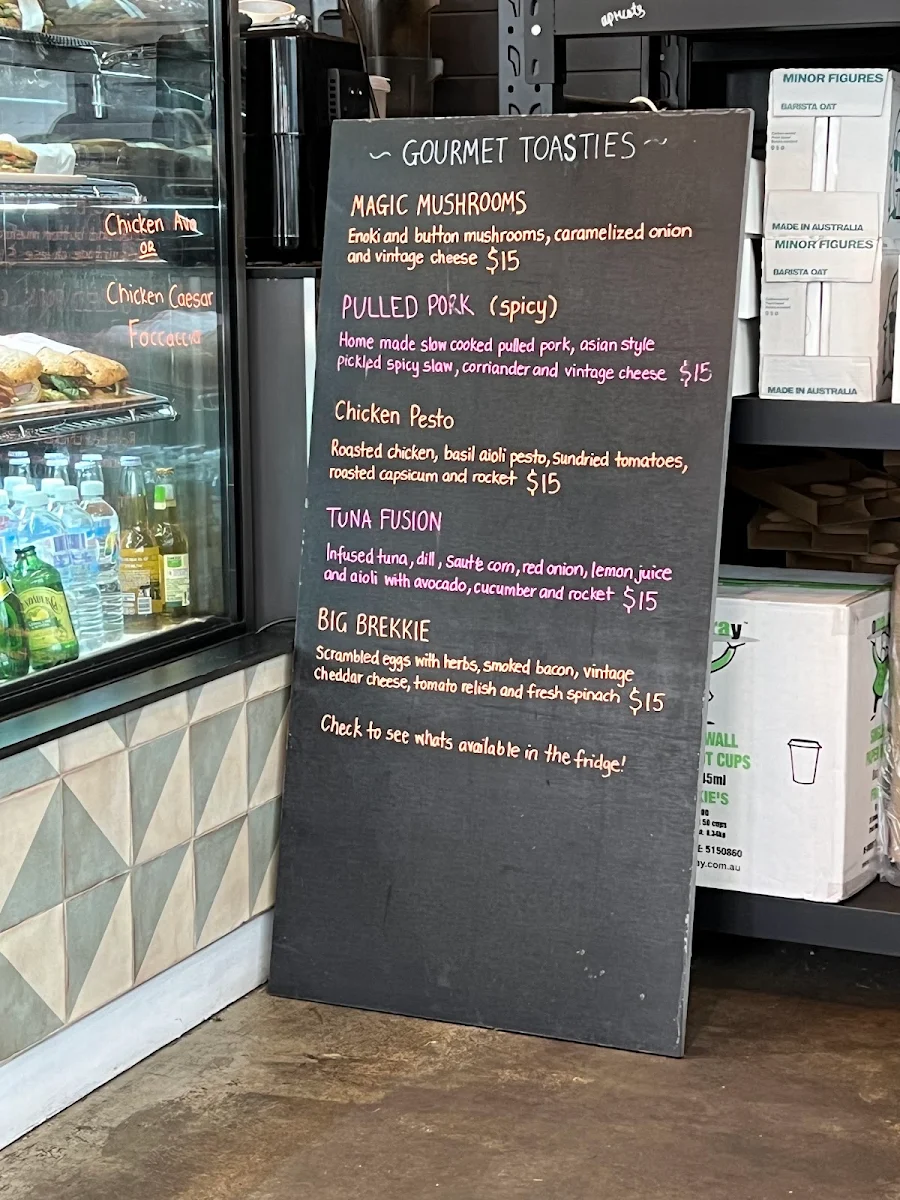 apricots
~ GOURMET TOASTIES ~
MAGIC MUSHROOMS
Enoki and button mushrooms, caramelized onion
and vintage cheese $15
PULLED PORK (spicy)
Home made slow cooked pulled pork, asian style
pickled spicy slaw, corriander and vintage cheese $15
Chicken Pesto
Roasted chicken, basil aioli pesto, sundried tomatoes,
roasted capsicum and rocket $15
TUNA FUSION
Infused tuna, dill, sauté corn, red onion, lemon juice
and aioli with avocado, cucumber and rocket $15
BIG BREKKIE
Scrambled eggs with herbs, smoked bacon, vintage
cheddar cheese, tomato relish and fresh spinach $15
Check to see whats available in the fridge!
Chicken Avo
OR
Chicken Caesar
Foccaccia
MINOR FIGURES
BARISTA OAT
MADE IN AUSTRALIA
MINOR FIGURES
BARISTA OAT
MADE IN AUSTRALIA
ay
WALL
T CUPS
15ml
KIE'S
50 cups
5150860
ay.com.au